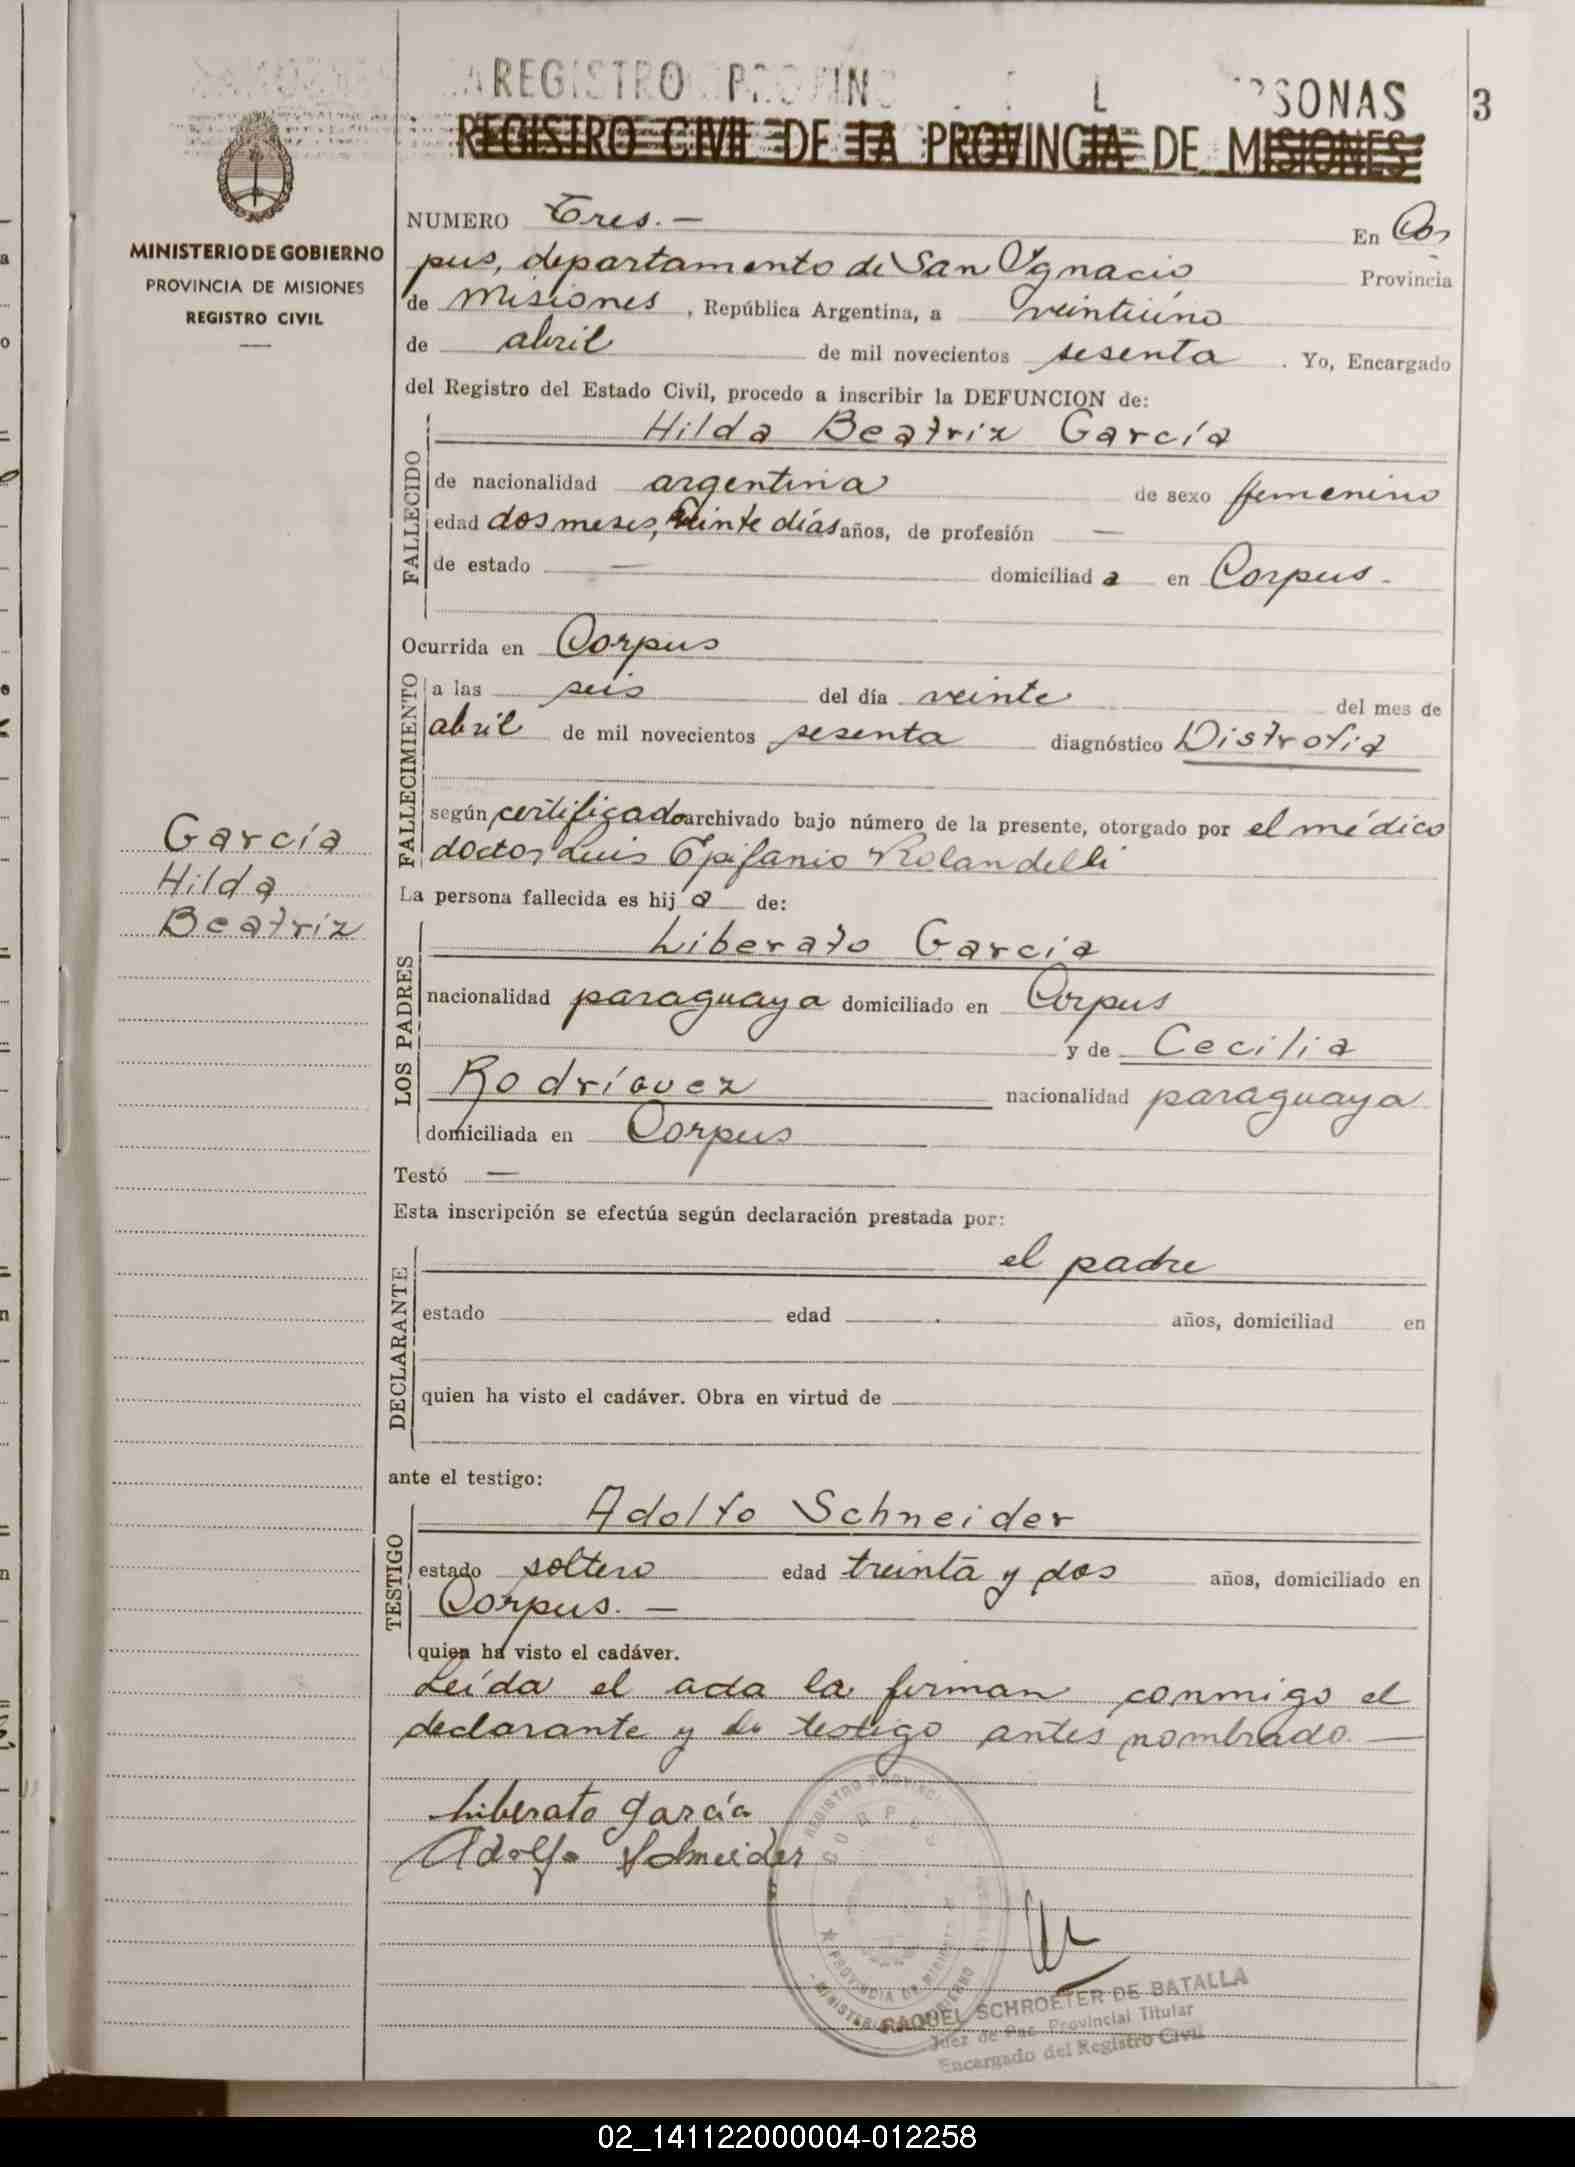 REGISTRO PROVIN L RSONAS
3
REGISTRO CIVIL DE LA PROVINCIA DE MISIONES
MINISTERIO DE GOBIERNO
PROVINCIA DE MISIONES
REGISTRO CIVIL
NUMERO Tres.— En Cor
pus, departamento de San Ygnacio Provincia
de Misiones, República Argentina, a veintiúno
de abril de mil novecientos sesenta. Yo, Encargado
del Registro del Estado Civil, procedo a inscribir la DEFUNCION de:
Hilda Beatriz García
FALLECIDO
de nacionalidad argentina de sexo femenino
edad dos meses, veinte días años, de profesión —
de estado — domiciliad a en Corpus.
Ocurrida en Corpus
FALLECIMIENTO
a las seis del día veinte del mes de
abril de mil novecientos sesenta diagnóstico Distrofia
según certificado archivado bajo número de la presente, otorgado por el médico
doctor Luis Epifanio Rolandelli
García
Hilda
Beatríz
La persona fallecida es hij a de:
Liberato García
LOS PADRES
nacionalidad paraguaya domiciliado en Corpus
y de Cecilia
Rodríguez nacionalidad paraguaya
domiciliada en Corpus
Testó —
Esta inscripción se efectúa según declaración prestada por:
el padre
DECLARANTE
estado edad años, domiciliad en
quien ha visto el cadáver. Obra en virtud de
ante el testigo:
Adolfo Schneider
TESTIGO
estado soltero edad treinta y dos años, domiciliado en
Corpus.—
quien ha visto el cadáver.
Leída el acta la firman conmigo el
declarante y testigo antes nombrado.—
Liberato García
Adolfo Schneider
REGISTRO PROVINCI
CORPUS
PROVINCIA DE MISIONES
MINISTERIO GOBIERNO
RAQUEL SCHROETER DE BATALLA
Juez de Paz Provincial Titular
Encargado del Registro Civil
02_141122000004-012258